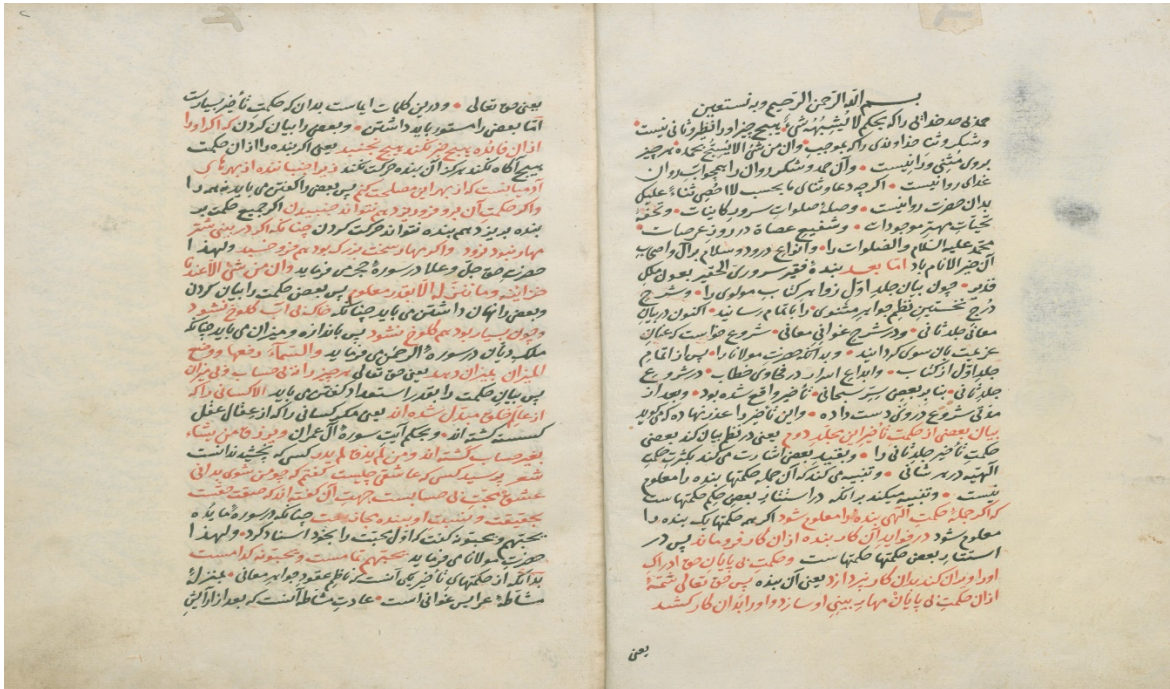 بسم الله الرحمن الرحیم وبه نستعین
حمد بی حد خدائی راکه بحکم لا یشبهه شئ بهیچ چیز اورا نظیر وثانی نیست
وشکر وثنا خداوندی راکه بموجب وان من شئ الا یسبح بحمده بهر چیز
بروی مثنی ورا نیست • وآن حمد وشکر روان را همچو آب روان
غذای روانیست • اگرچه دعا وثنای ما بحسب لا احصی ثناء علیک
بدان حضرت روا نیست • وصلهٔ صلوات سرور کاینات • وتحفهٔ
تحیات مهتر موجودات • وشفیع عصاة در روز عرصات •
محمد علیه السلام والصلوات را • وانواع درود وسلام بر آل واصحاب
آن خیر الانام باد اما بعد بندهٔ فقیر سروری الحقیر بعون ملک
قدیر • چون بیان جلد اول زواهر کتاب مولوی را • وشرح
درج نخستین نظم جواهر مثنوی را باتمام رسانید • اکنون در بیان
معانی جلد ثانی • ودر شرح غوانی معانی • شروع خواست که عنان
عزیمت بآن سوی کرداند • وبدانکه حضرت مولانا را • پس از اتمام
جلد اول از کتاب • وابداع اسرار در فحاوی خطاب • در شروع
جلد ثانی • بنا بر بعضی سر سبحانی • تأخیر واقع شده بود • وبعد از
مدتی شروع دروی دست داده • واین تأخیر را عذر نهاده که می گوید
بیان بعضی از حکمت تأخیر این مجلد دوم یعنی در نظم بیان کند بعضی
حکمت تأخیر جلد ثانی را • وبعضی اشارت می کند بکثرت حکمت
الهیه در هر شانی • وتنبیه می کند که آن جمله حکمتها بنده را معلوم
نیست • وتنبیه میکند برانکه در استتار بعضی حکم حکمتهاست
که اگر جملهٔ حکمت الهی بنده را معلوم شود اگر همه حکمتها یک بنده را
معلوم شود در فواید آن کار بنده از ان کار فرو ماند پس در
استتار بعض حکمتها حکمتهاست وحکمت بی پایان حق ادراک
اورا ویران کند بدان کار نپردازد یعنی آن بنده پس حق تعالی شمهٔ
ازان حکمت بی پایان مهار بینی او سازد و اورا بدان کار کشد
یعنی
یعنی حق تعالی • ودرین کلمات ایماست بدان که حکمت تأخیر بسیارست
اما بعض را مستور باید داشتن • وبعضی را بیان کردن که اگر اورا
ازان فائده هیچ خبر نکند هیچ نجنبد یعنی اگر بنده را ازان حکمت
هیچ آگاه نکند هرگز آن بنده حرکت نکند زیرا جنباننده از بهرهای
آدمیانست که از بهر این مصلحت کنم پس بعضی را گفتن می باید بنده را
واگر حکمت آن برو فرو ریزد هم نتواند جنبیدن اگر جمیع حکمت بر
بنده بریزد هم بنده نتواند حرکت کردن چنانکه اگر در بینی شتر
مهار نبود نرود واگر مهار سخت بزرگ بود هم فرو خسبد ولهذا
حضرت حق جل وعلا در سورهٔ حجر می فرماید وان من شئ الا عندنا
خزاینه وما ننزله الا بقدر معلوم پس بعضی حکمت را بیان کردن
وبعضی را نهان داشتن می باید چنانکه خاک بی آب کلوخ نشود
وچون بسیار بود هم کلوخ نشود پس باندازه ومیزان می باید چنانکه
ملک دیان در سورهٔ الرحمن می فرماید والسماء رفعها ووضع
المیزان بمیزان دهد یعنی حق تعالی هر چیز را نه بی حساب وبی میزان
پس بیان حکمت را بقدر استعداد گفتن می باید الا کسانی را که
از عالم خلق مبدل شده اند یعنی مگر کسانی را که از عقال عقل
گسسته گشته اند • وبحکم آیت سورهٔ آل عمران ویرزق من یشاء
بغیر حساب گشته اند ومن لم یذق لم یدر کسی که نچشید ندانست
شعر پرسید کسی که عاشقی چیست گفتم که چو من شوی بدانی
عشق محبت بی حسابست جهت آن گفته اند که صفت حقست
بحقیقت ونسبت او ببنده مجازیست چنانکه در سورهٔ مائده
یحبهم ویحبونه گفت که اول محبت را بخود اسناد کرد • ولهذا
حضرت مولانا می فرماید یحبهم تمامست ویحبونه کدامست
بدانکه از حکمتهای تأخیر یکی آنست که ناظم عقود جواهر معانی • بمنزلهٔ
مشاطهٔ عرایس غوانی است • عادت مشاطه آنست که بعد از آرایش